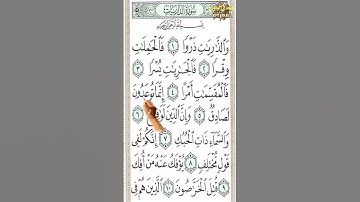 سُورَةُ الذَّارِيَاتِ
بِسْمِ اللَّهِ الرَّحْمَٰنِ الرَّحِيمِ
وَالذَّارِيَاتِ ذَرْوًا ١ فَالْحَامِلَاتِ
وِقْرًا ٢ فَالْجَارِيَاتِ يُسْرًا ٣
فَالْمُقَسِّمَاتِ أَمْرًا ٤ إِنَّمَا تُوعَدُونَ
لَصَادِقٌ ٥ وَإِنَّ الدِّينَ لَوَاقِعٌ ٦
وَالسَّمَاءِ ذَاتِ الْحُبُكِ ٧ إِنَّكُمْ لَفِي
قَوْلٍ مُّخْتَلِفٍ ٨ يُؤْفَكُ عَنْهُ مَنْ أُفِكَ
٩ قُتِلَ الْخَرَّاصُونَ ١٠ الَّذِينَ هُمْ فِي